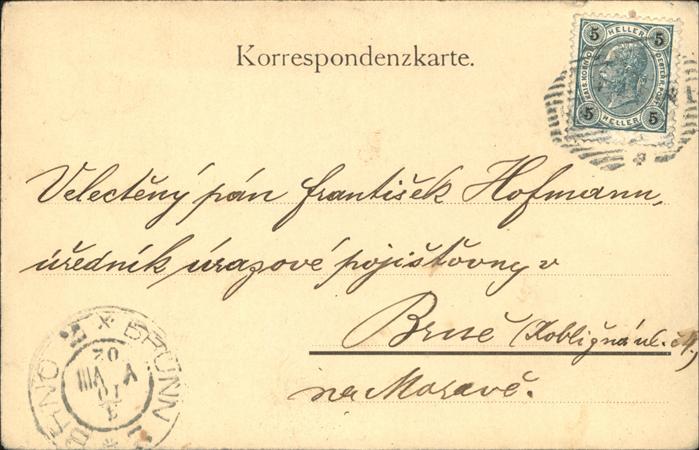 Korrespondenzkarte.
5 HELLER 5
KAIS. KÖNIGL. OESTERR. POST.
5 HELLER 5
Velectěný pán František Hofmann,
úředník úrazové pojišťovny v
Brně (Kobližná ul. č 4)
na Moravě.
BRÜNN
BRNO